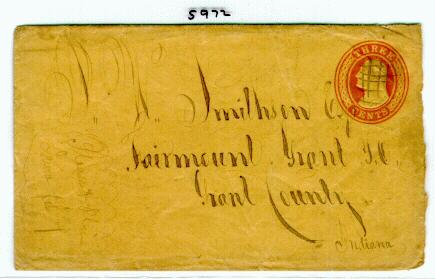 5972
THREE
CENTS
N. Smithson Esq
Fairmount, Grant
Grant County
Indiana